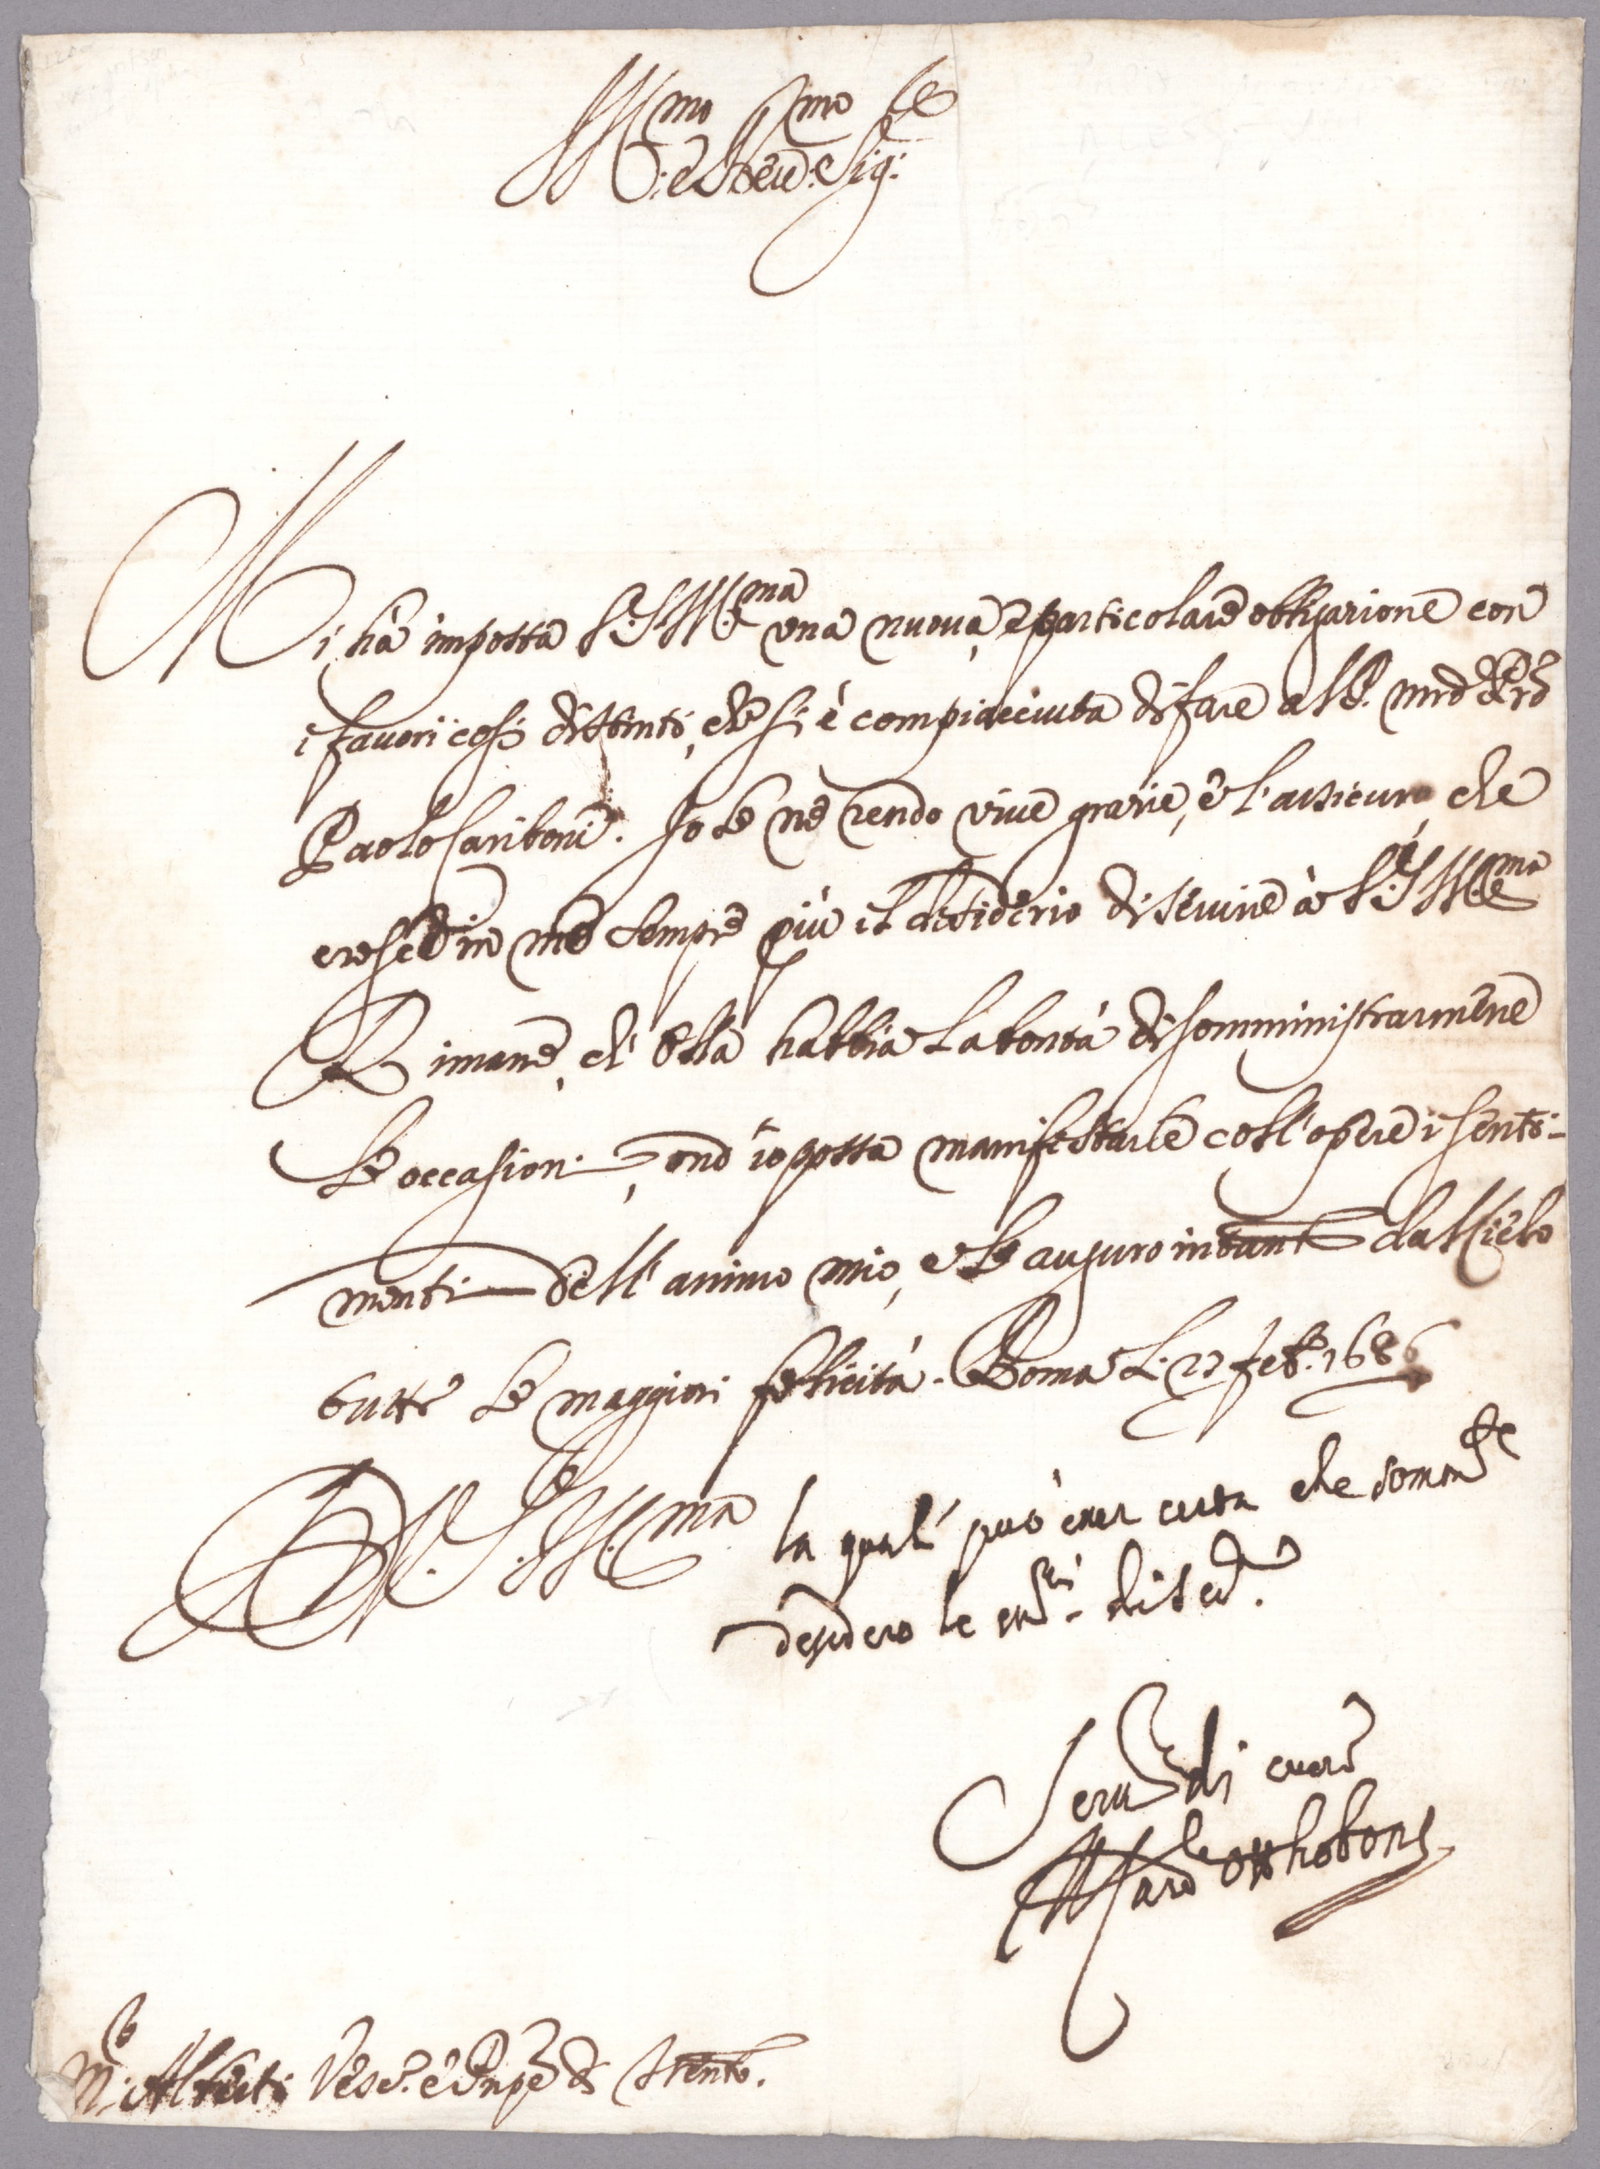 Ill.mo e Rev.mo Sig.re
Mi hà imposta V.S. Ill.ma una nuova, e particolare obligatione con
i favori così distinti, che si è compiaciuta di fare al
Paolo Cariboni. Io le ne rendo vive gratie, e l'assicuro, che
cresce in me sempre più il desiderio di servire à V.S. Ill.ma
Rimane, ch'ella habbia la bontà di somministrarmene
le occasioni, ond'io possa manifestarle coll'opere i senti-
menti dell'animo mio, e le auguro intanto dal Cielo
tutte le maggiori felicità. Roma li 27 feb.o 1686
D. V.S. Ill.ma la qual può esser certa che somm.te
desidero le di
Serv.re di cuore
Il Card.le Otthoboni
M.r Alberti Vesc.o e Prnpe di Trento.